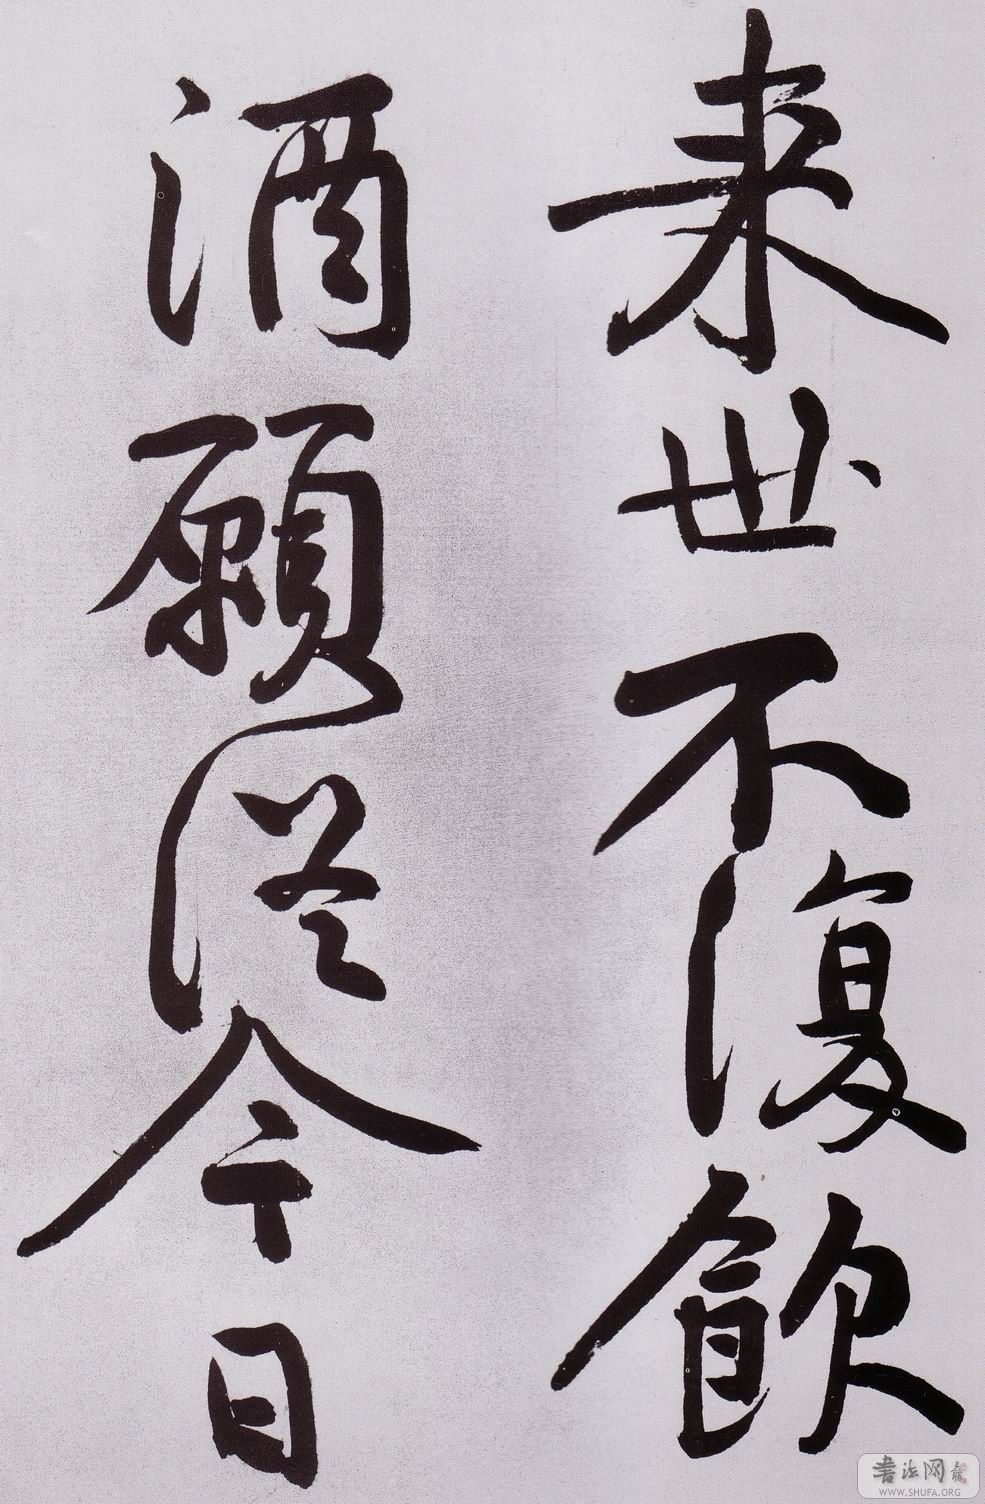 来世不復飲
酒願從今日
書法网
WWW.SHUFA.ORG